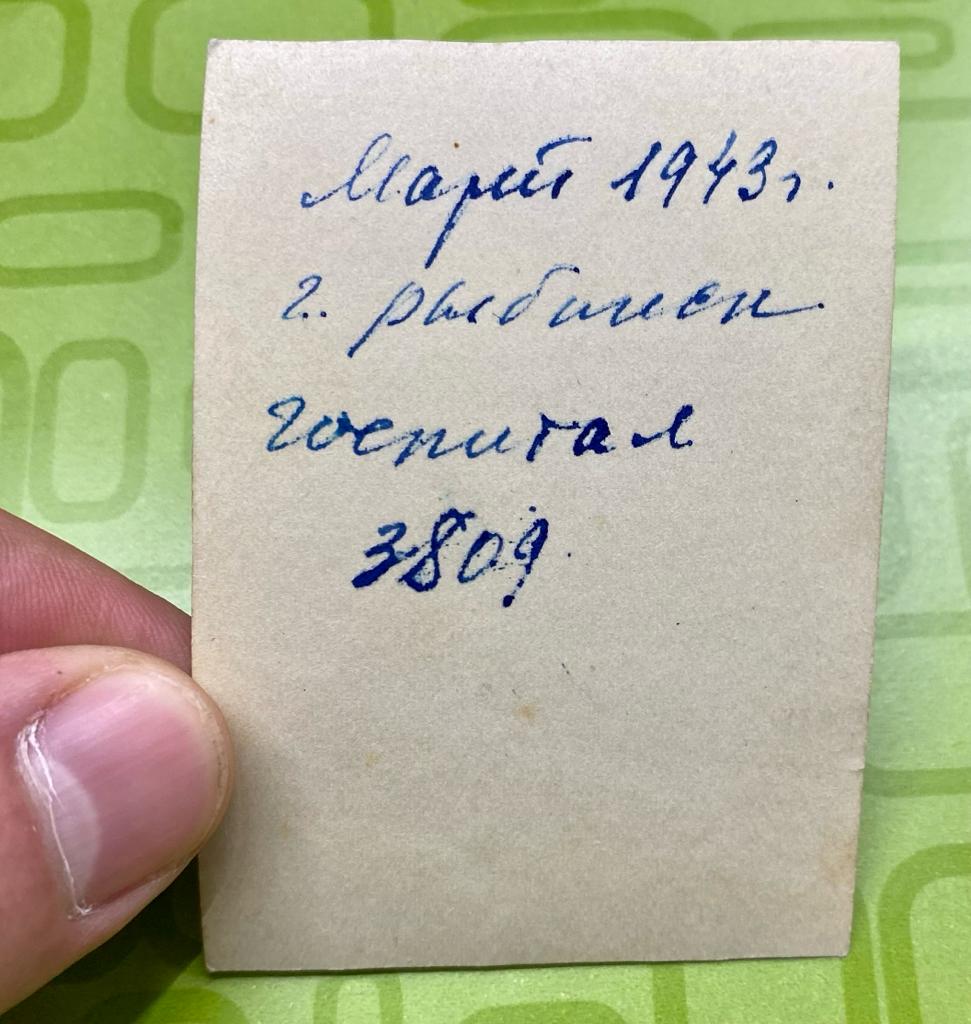 Март 1943 г.
г. рыбинск
Госпитал
3809